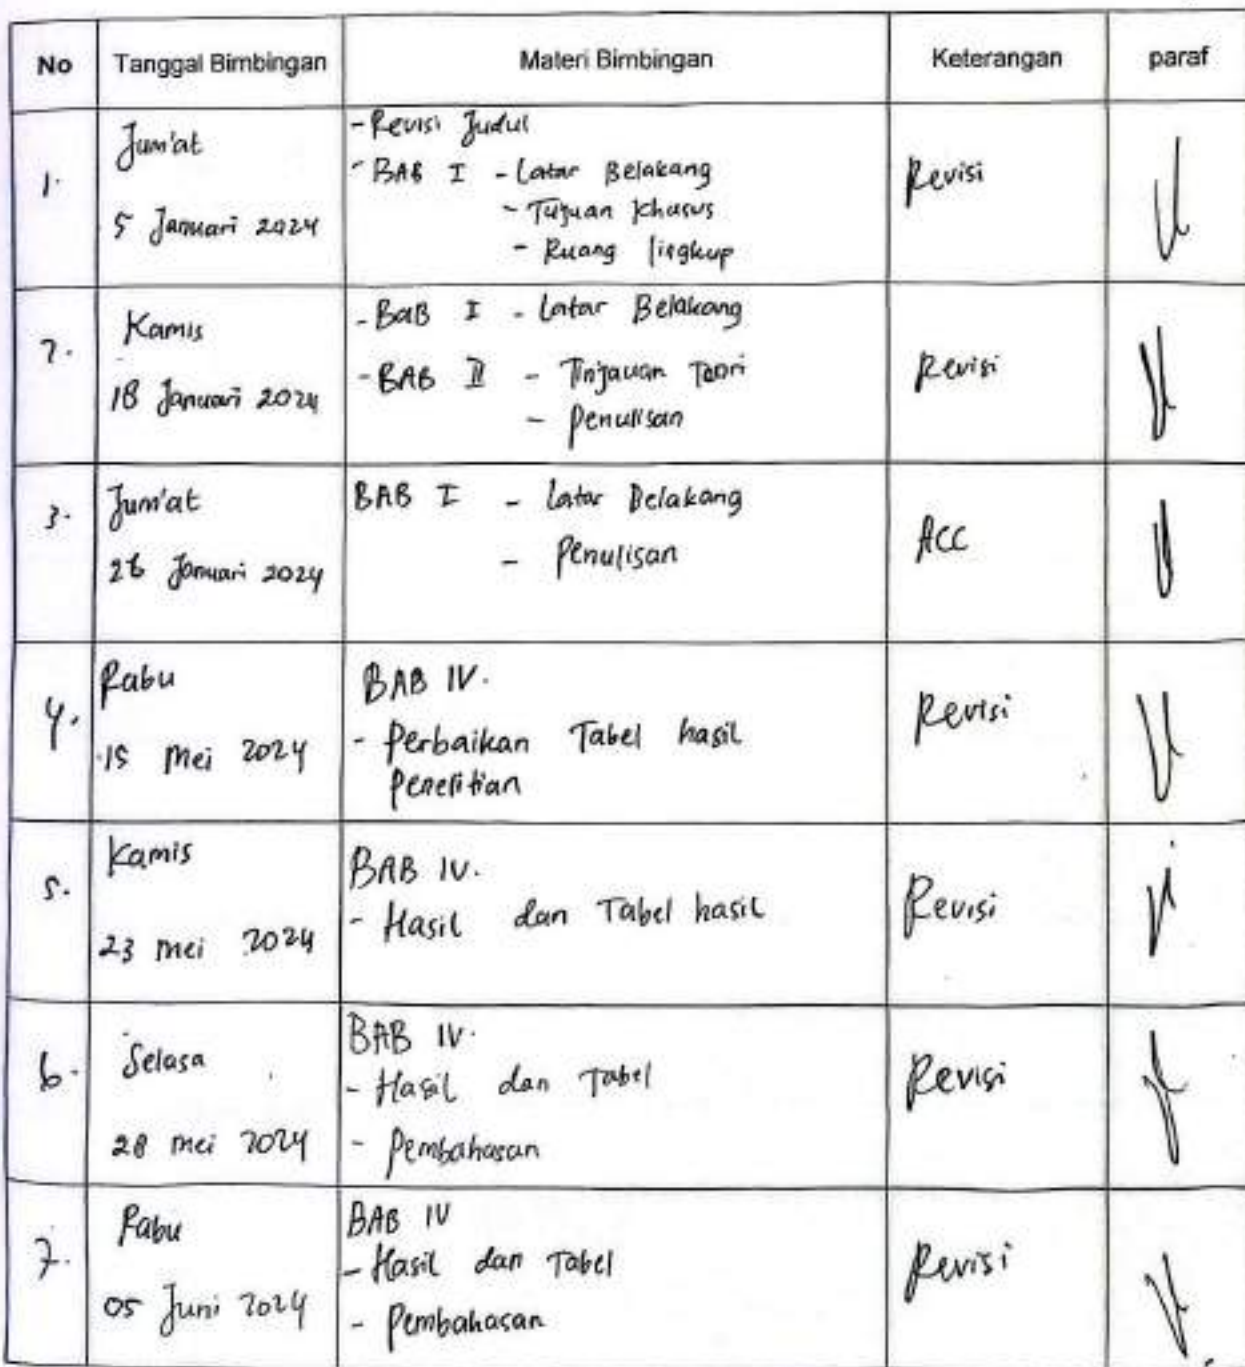 No Tanggal Bimbingan Materi Bimbingan Keterangan paraf
1.
Jum'at
5 Januari 2024
- Revisi Judul
- BAB I - Latar Belakang
- Tujuan Khusus
- Ruang lingkup
Revisi
2.
Kamis
18 Januari 2024
- BaB I - Latar Belakang
- BAB II - Tinjauan Teori
- Penulisan
Revisi
3.
Jum'at
26 Januari 2024
BAB I - Latar Belakang
- Penulisan
ACC
4.
Rabu
15 Mei 2024
BAB IV.
- Perbaikan Tabel hasil
Penelitian
Revisi
5.
Kamis
23 Mei 2024
BAB IV.
- Hasil dan Tabel hasil
Revisi
6.
Selasa
28 Mei 2024
BAB IV.
- Hasil dan Tabel
- Pembahasan
Revisi
7.
Rabu
05 Juni 2024
BAB IV
- Hasil dan Tabel
- Pembahasan
Revisi